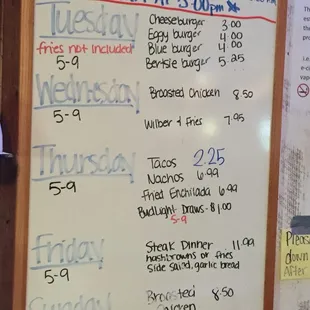 5:00pm
Tuesday
fries not included
5-9
Cheeseburger 3.00
Eggy burger 4.00
Blue burger 4.00
Bertsie burger 5.25
Wednesday
5-9
Broasted Chicken 8.50
Wilber & fries 7.95
Thursday
5-9
Tacos 2.25
Nachos 6.99
Fried Enchilada 6.99
Budlight Draws - $1.00
5-9
Friday
5-9
Steak Dinner 11.99
hashbrowns or fries
side salad, garlic bread
Sunday
Broasted 8.50
Chicken
Please
down
After